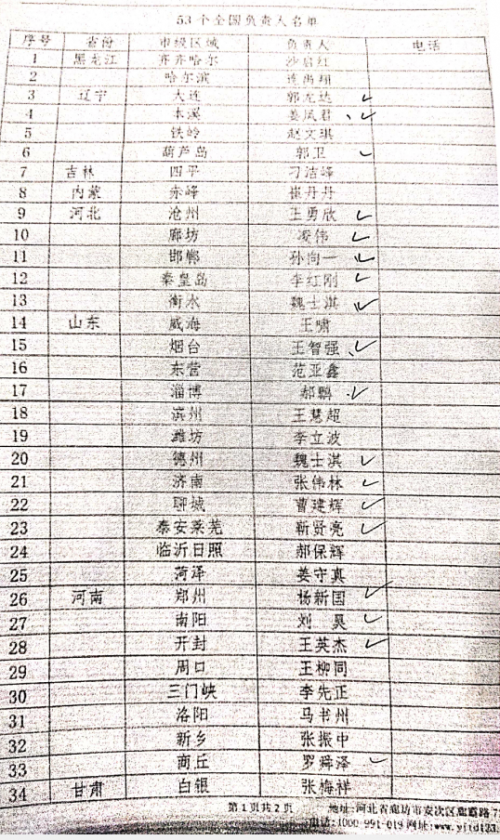 53个全国负责人名单
序号 省份 市级区域 负责人 电话
1 黑龙江 齐齐哈尔 沙启红
2 哈尔滨
3 辽宁 大连 郭龙达
4 本溪 姜凤君
5 铁岭 赵文琪
6 葫芦岛 郭卫
7 吉林 四平 刁洁峰
8 内蒙 赤峰 崔丹丹
9 河北 沧州 王勇欣
10 廊坊 凌伟
11 邯郸 孙向一
12 秦皇岛 李红刚
13 衡水 魏士淇
14 山东 威海 王啸
15 烟台 王智强
16 东营 范亚鑫
17 淄博 郝鹏
18 滨州 王慧超
19 潍坊 李立波
20 德州 魏士淇
21 济南 张伟林
22 聊城 曹建辉
23 泰安莱芜 靳贤亮
24 临沂日照 郝保辉
25 菏泽 姜守真
26 河南 郑州 杨新国
27 南阳 刘 昊
28 开封 王英杰
29 周口 王柳同
30 三门峡 李先正
31 洛阳 马书州
32 新乡 张振中
33 商丘 罗舜泽
34 甘肃 白银 张梅祥
第1页共2页 地址:河北省廊坊市安次区
电话:4000-991-019 网址:www.yitu